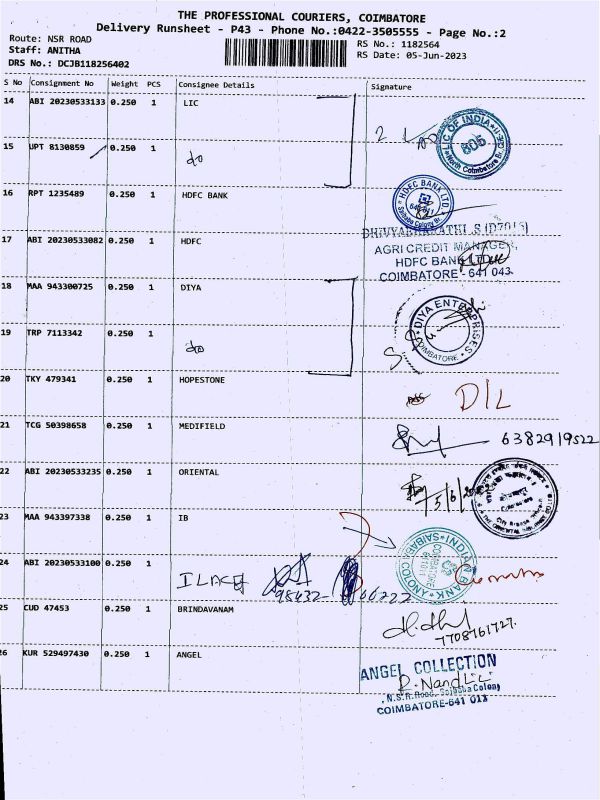 THE PROFESSIONAL COURIERS, COIMBATORE
Delivery Runsheet - P43 - Phone No.:0422-3505555 - Page No.:2
Route: NSR ROAD
RS No.: 1182564
Staff: ANITHA
RS Date: 05-Jun-2023
DRS No.: DCJB118256402
S No Consignment No Weight PCS Consignee Details Signature
14 ABI 20230533133 0.250 1 LIC
LIC OF INDIA
805
North Coimbatore Br.
15 UPT 8130859 0.250 1 do
16 RPT 1235489 0.250 1 HDFC BANK
HDFC BANK LTD.
Saibaba Colony Br
17 ABI 20230533082 0.250 1 HDFC
AGRI CREDIT MANAGER,
HDFC BANK LTD
COIMBATORE - 641 043.
18 MAA 943300725 0.250 1 DIYA
DIYA ENTERPRISES
COIMBATORE
19 TRP 7113342 0.250 1 do
20 TKY 479341 0.250 1 HOPESTONE
D/L
21 TCG 50398658 0.250 1 MEDIFIELD
6382919522
22 ABI 20230533235 0.250 1 ORIENTAL
23 MAA 943397338 0.250 1 IB
INDIAN BANK
SAIBABA COLONY
COIMBATORE
24 ABI 20230533100 0.250 1
25 CUD 47453 0.250 1 BRINDAVANAM
7708761727
26 KUR 529497430 0.250 1 ANGEL
ANGEL COLLECTION
R. Nandi
N.S.R. Road, Saibaba Colony
COIMBATORE-641 011